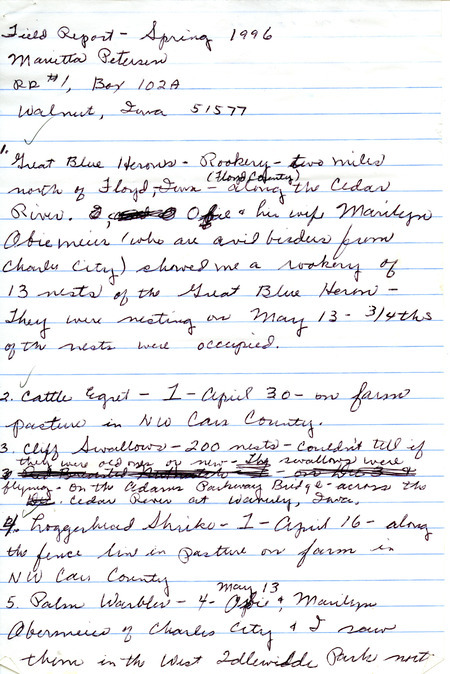 Field Report - Spring 1996
Marietta Petersen
RR #1, Box 102A
Walnut, Iowa 51577
1. Great Blue Herons - Rookery - two miles
north of Floyd, Iowa - (Floyd County) along the Cedar
River. & his wife Marilyn
(who are avid birders from
Charles City) showed me a rookery of
13 nests of the Great Blue Heron -
They were nesting on May 13 - 3/4ths
of th nests were occupied.
2. Cattle Egret - 1 - April 30 - on farm
pasture in NW Cass County.
3. Cliff Swallows - 200 nests - couldn't tell if
they were old ones or new - The swallows were
flying - on the Adams Parkway Bridge - across the
Cedar River at Waverly, Iowa.
4. Loggerhead Shrike - 1 - April 16 - along
the fence line in pasture on farm in
NW Cass County
5. Palm Warbler - 4 - May 13 & Marilyn
of Charles City & I saw
them in the West Park